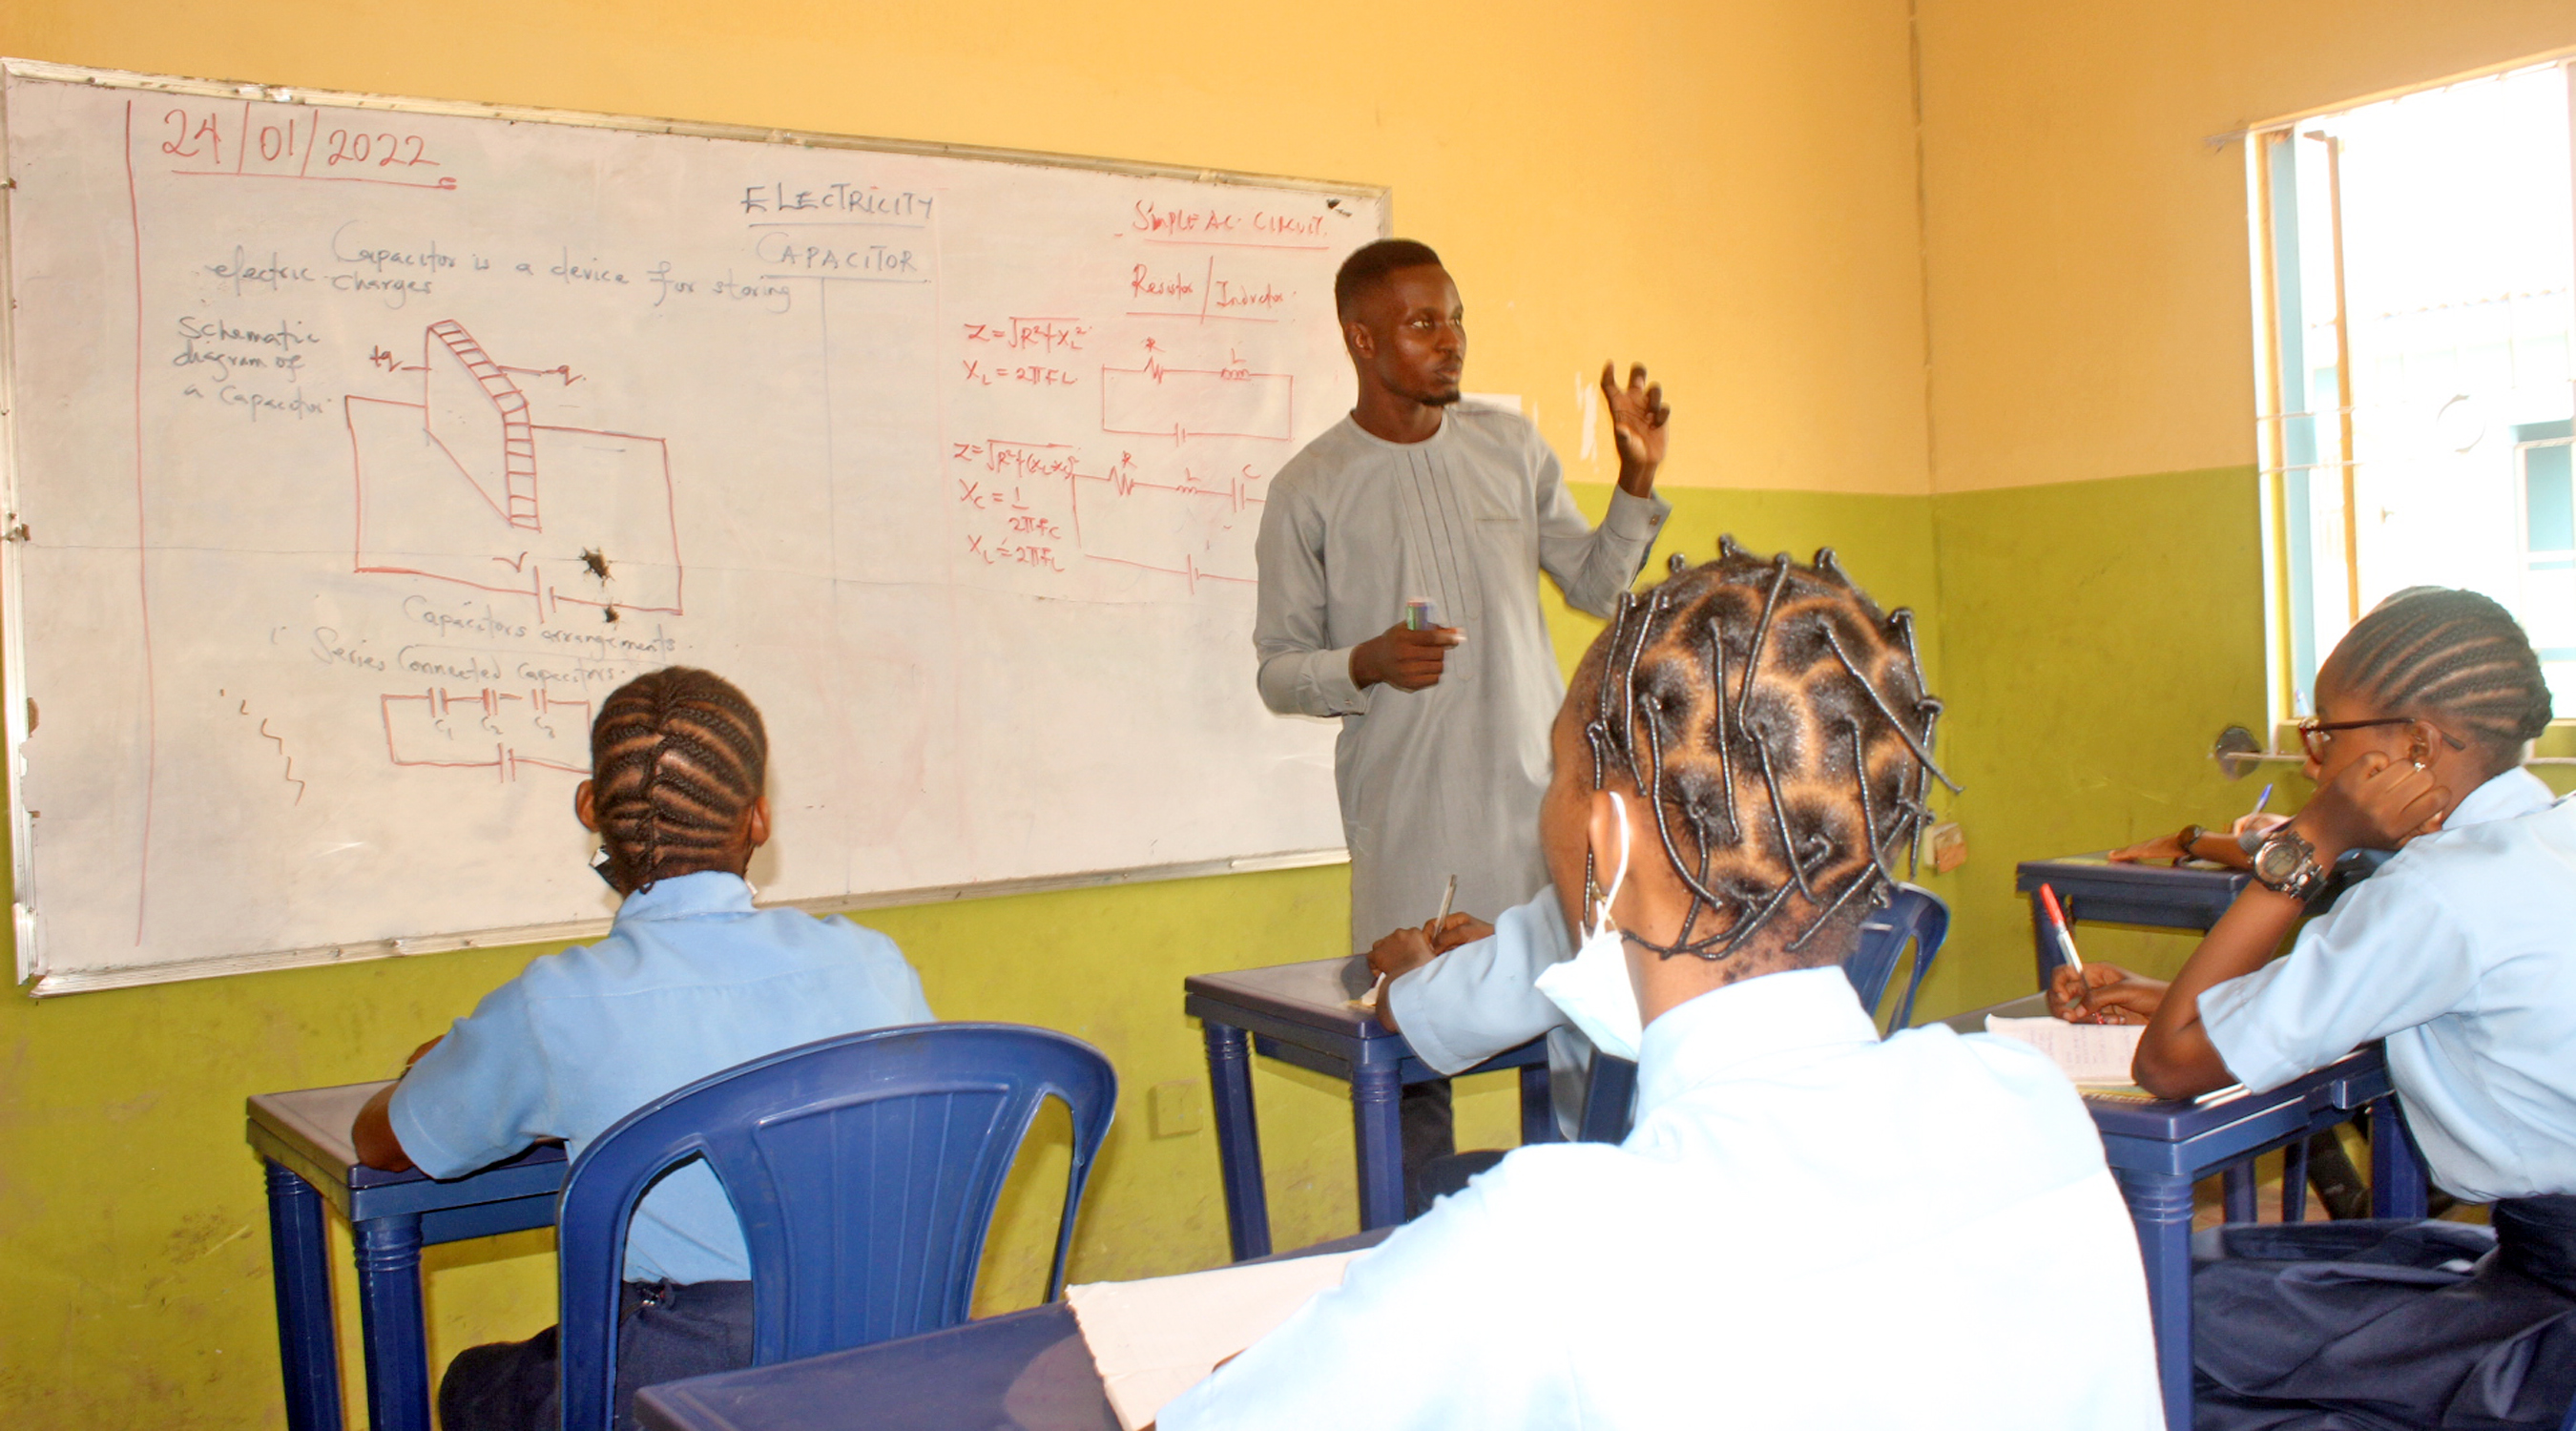 24/01/2022
ELECTRICITY
CAPACITOR
Capacitor is a device for storing
electric charges
Schematic
diagram of
a Capacitor
+q
-q
V
Capacitors arrangements
i
Series Connected Capacitors.
C1 C2 C3
SIMPLE AC CIRCUIT.
Resistor / Inductor
Z=√R²+XL²
XL=2πFL
R L
Z=√R²+(XL-XC)²
XC=1/2πFC
XL=2πFL
R L C